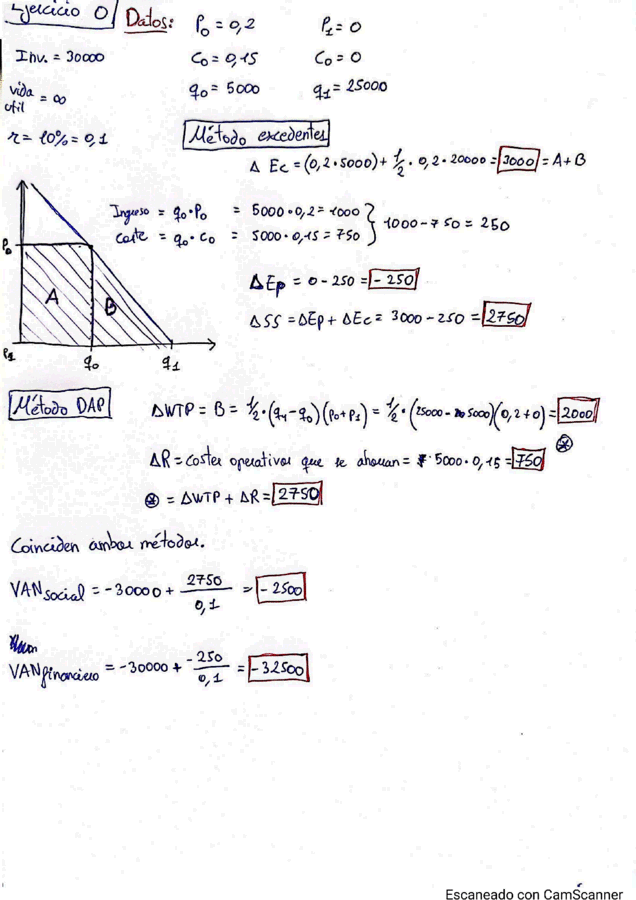 Ejercicio 0 Datos: P₀ = 0,2 P₁ = 0
Inv. = 30000 C₀ = 0,15 C₀ = 0
vida útil = ∞ q₀ = 5000 q₁ = 25000
r = 10% = 0,1
Método excedentes
Δ Ec = (0,2 · 5000) + 1/2 · 0,2 · 20000 = 3000 = A + B
Ingreso = q₀ · P₀ = 5000 · 0,2 = 1000
Coste = q₀ · C₀ = 5000 · 0,15 = 750
} 1000 - 750 = 250
P₀
A
B
P₁
q₀ q₁
ΔEp = 0 - 250 = - 250
ΔSS = ΔEp + ΔEc = 3000 - 250 = 2750
Método DAP
ΔWTP = B = 1/2 · (q₁ - q₀) (p₀ + p₁) = 1/2 · (25000 - 5000) (0,2 + 0) = 2000
ΔR = costes operativos que se ahorran = 5000 · 0,15 = 750 ⊛
⊛ = ΔWTP + ΔR = 2750
Coinciden ambos métodos.
VAN social = - 30000 + 2750/0,1 = - 2500
VAN financiero = -30000 + -250/0,1 = -32500
Escaneado con CamScanner